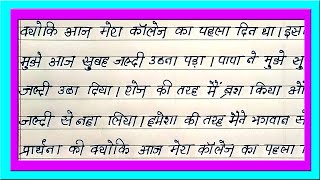 क्योकि आज मेरा कॉलेज का पहला दिन था। इस
मुझे आज सुबह जल्दी उठना पड़ा। पापा ने मुझे सु
जल्दी उठा दिया। रोज की तरह मैं ब्रश किया औ
जल्दी से नहा लिया। हमेशा की तरह मैने भगवान से
प्रार्थना की क्योकि आज मेरा कॉलेज का पहला